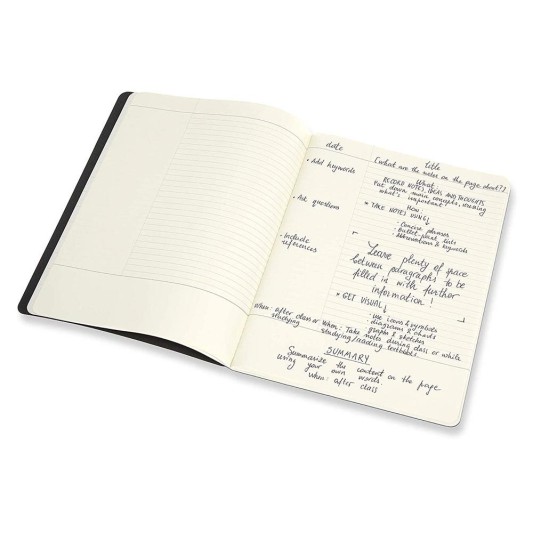 date
title
(what are the notes on the page about?)
• Add keywords
• Ask questions
• Include
references
When: after class or
studying
What:
RECORD NOTES, IDEAS AND THOUGHTS
Put down main concepts, stressing
what's important
How:
* TAKE NOTES USING↓
· Concise phrases
· Bullet-point lists
· Abbreviations & keywords
Leave plenty of space
between paragraphs to be
filled in with further
information!
* GET VISUAL↓
use icons & symbols
diagrams & charts
graphs & sketches
When: Take notes during class or while
studying/reading textbooks
SUMMARY
Summarize the content on the page
using your own words.
When: after class